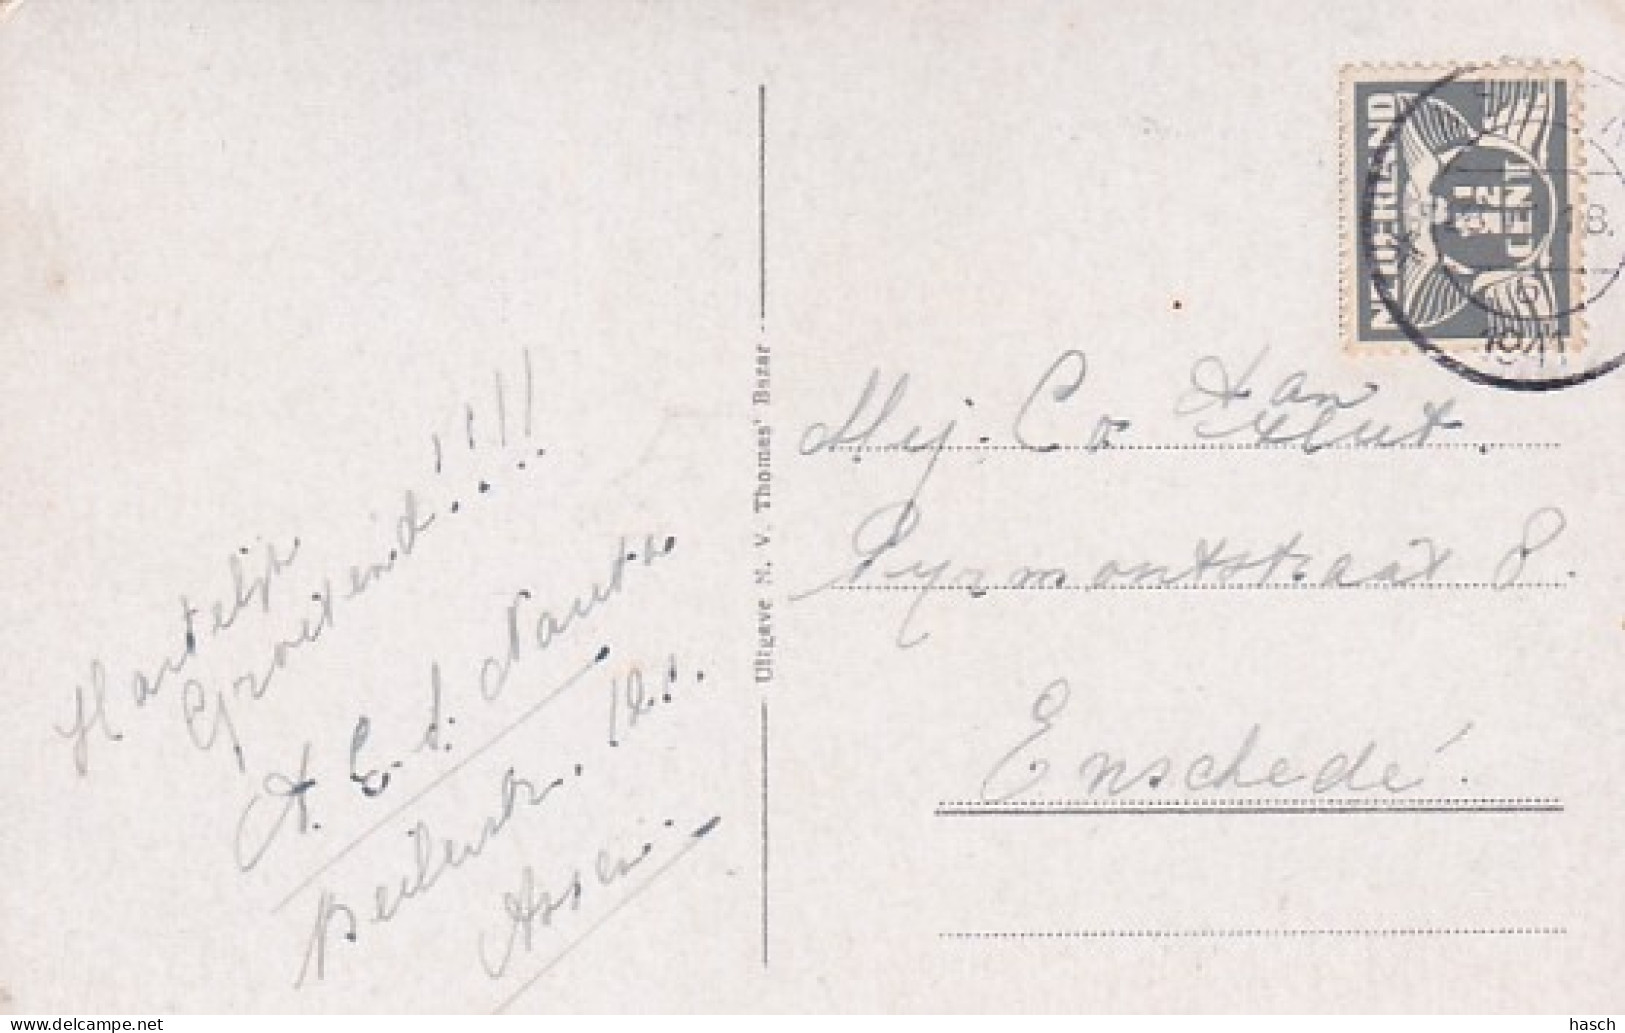 Hartelijk
Groetend!!!!
A. E. d. Nauta
Beilerstr.
Assen.
Uitgave N. V. Thomas' Bazar
NEDERLAND
1½
CENT
18.
1941
Mej. Co
Pyrmontstraat 8.
Enschedé.
delcampe.net
hasch